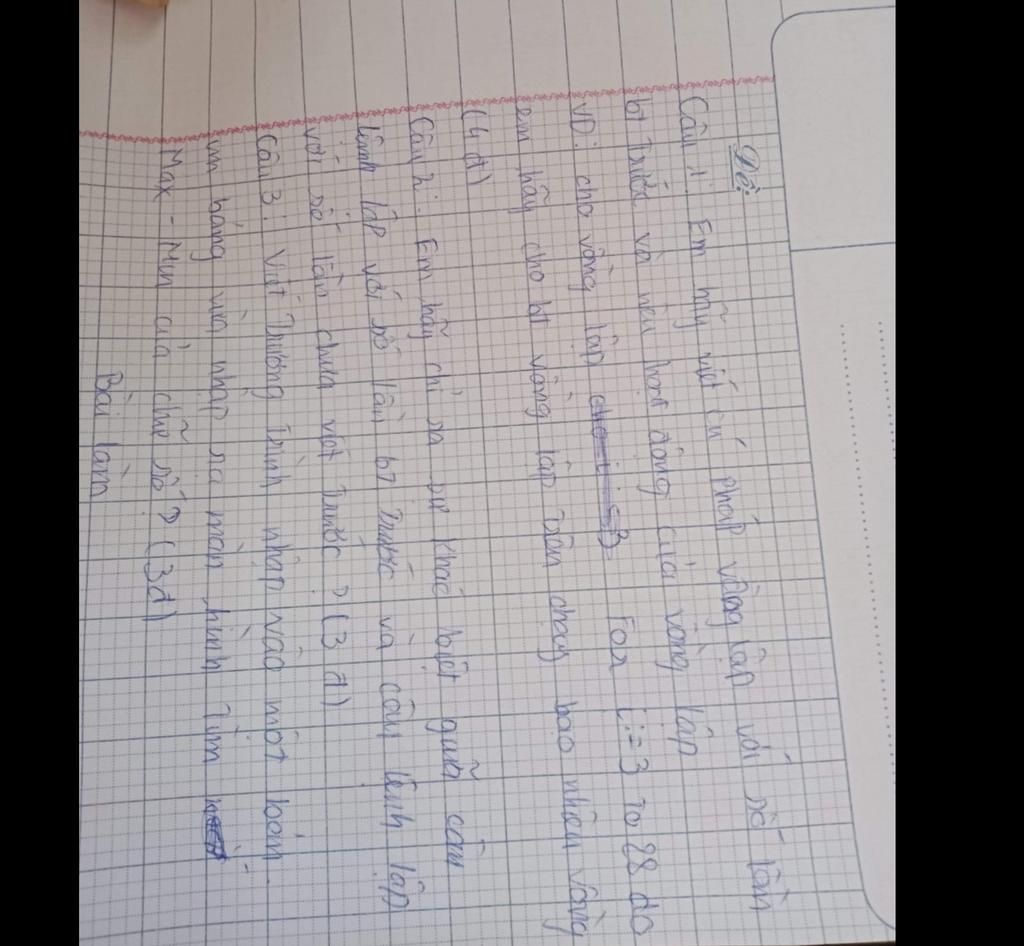 Đề:
Câu 1: Em hãy viết cú pháp vòng lặp với số lần
bt trước và nêu hoạt động của vòng lặp
VD: cho vòng lặp For i:=3 to 28 do
em hãy cho bt vòng lặp trên chạy bao nhiêu vòng
(4đ)
Câu 2: Em hãy chỉ ra sự khác biệt giữa câu
lệnh lặp với số lần bt trước và câu lệnh lặp
với số lần chưa việt trước? (3đ)
Câu 3: Viết trương trình nhập vào một bán
và nhập ra màn hình Tìm
Max - Min của chữ số? (3đ)
Bài làm